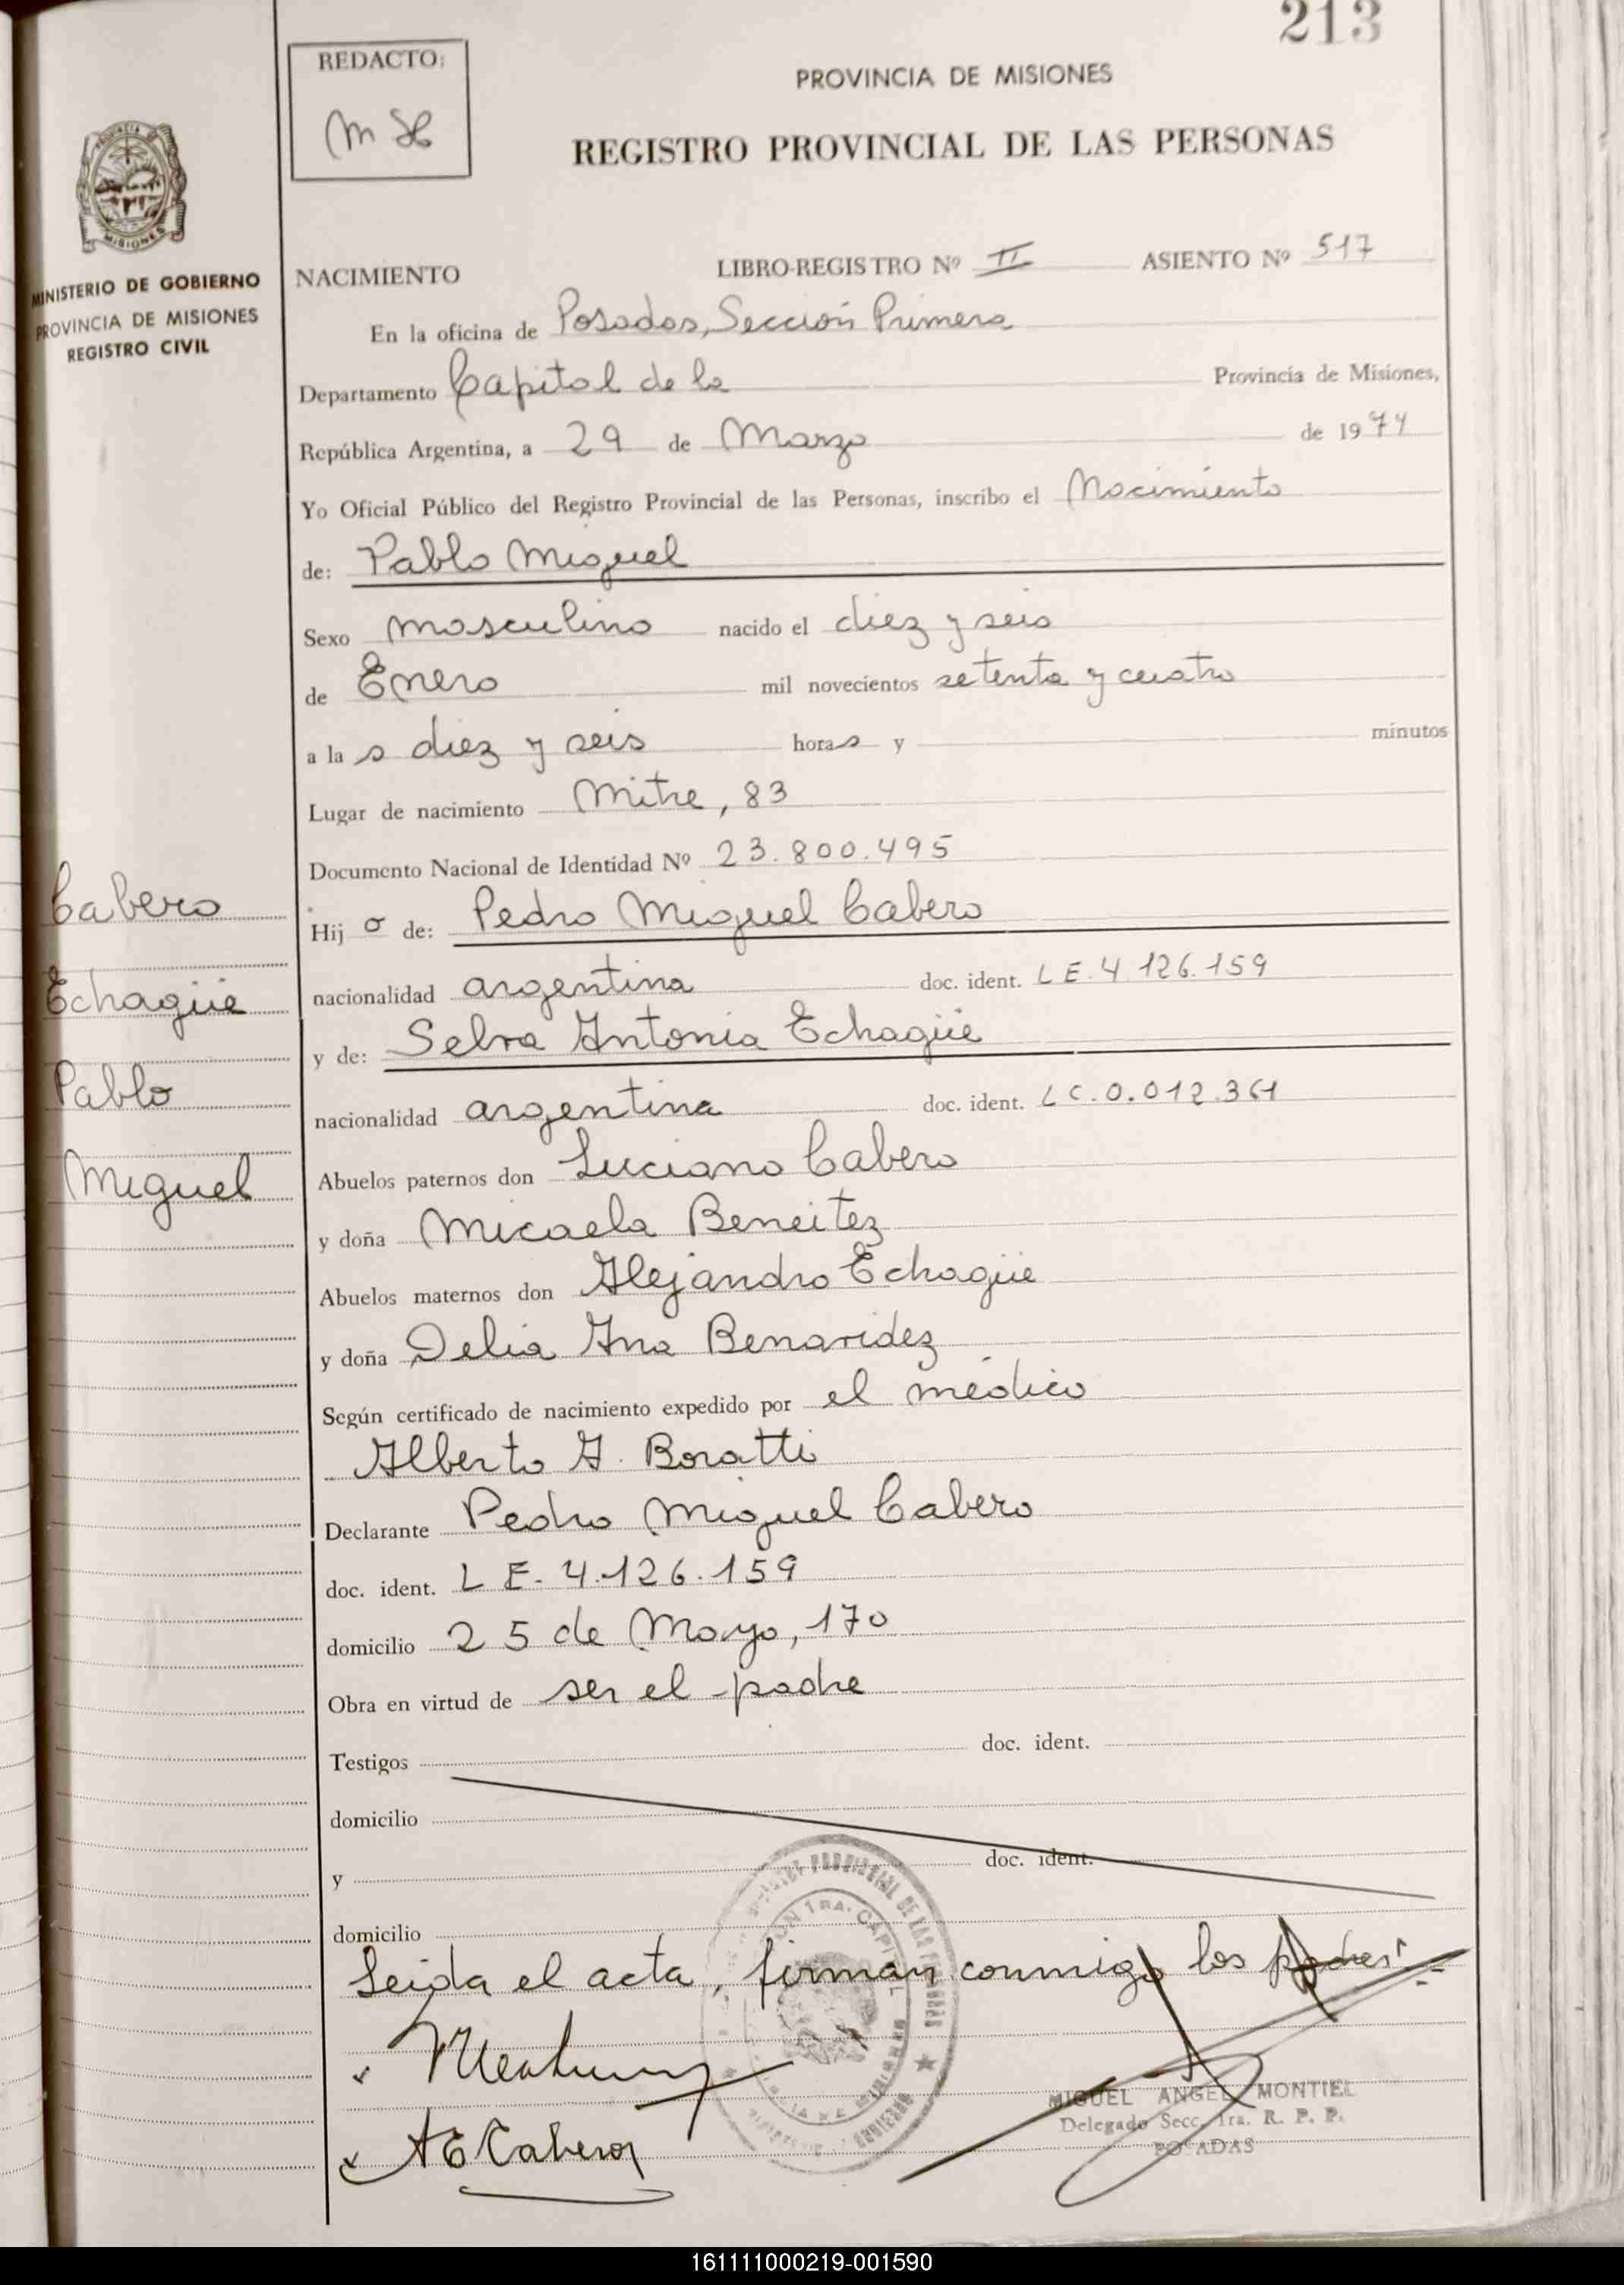 213
REDACTO:
PROVINCIA DE MISIONES
REGISTRO PROVINCIAL DE LAS PERSONAS
MISIONES
MINISTERIO DE GOBIERNO
PROVINCIA DE MISIONES
REGISTRO CIVIL
NACIMIENTO LIBRO-REGISTRO Nº II ASIENTO Nº 517
En la oficina de Posadas, Sección Primera
Departamento Capital de la Provincia de Misiones,
República Argentina, a 29 de Marzo de 1974
Yo Oficial Público del Registro Provincial de las Personas, inscribo el Nacimiento
de: Pablo Miguel
Sexo masculino nacido el diez y seis
de Enero mil novecientos setenta y cuatro
a la s diez y seis horas y minutos
Lugar de nacimiento Mitre, 83
Documento Nacional de Identidad Nº 23.800.495
Cabero
Hij o de: Pedro Miguel Cabero
nacionalidad argentina doc. ident. LE. 4.126.159
Echagüe
y de: Selva Antonia Echagüe
Pablo
nacionalidad argentina doc. ident. LC. 0.012.361
Miguel
Abuelos paternos don Luciano Cabero
y doña Micaela Beneitez
Abuelos maternos don Alejandro Echagüe
y doña Delia Ana Benavidez
Según certificado de nacimiento expedido por el médico
Alberto A. Boratti
Declarante Pedro Miguel Cabero
doc. ident. L E. 4.126.159
domicilio 25 de Mayo, 170
Obra en virtud de ser el padre
Testigos doc. ident.
domicilio
y doc. ident.
domicilio
Leida el acta, firman conmigo los padres
MIGUEL ANGEL MONTIEL
Delegado Secc. 1ra. R. P. P.
POSADAS
161111000219-001590